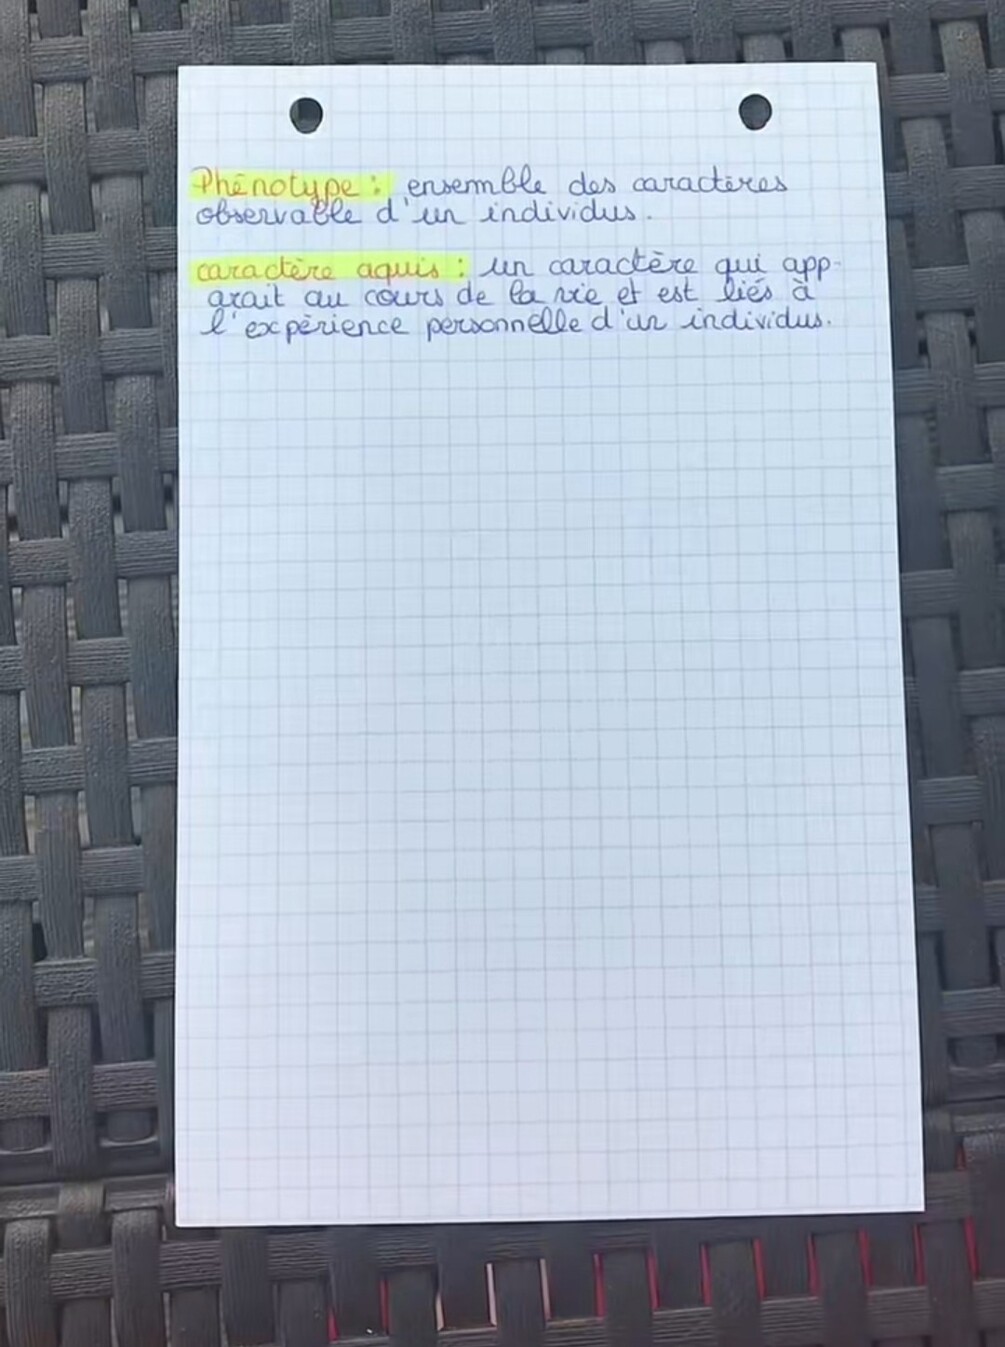 Phénotype : ensemble des caractères
observable d'un individus.
caractère aquis : un caractère qui app-
arait au cours de la vie et est liés à
l'expérience personnelle d'un individus.